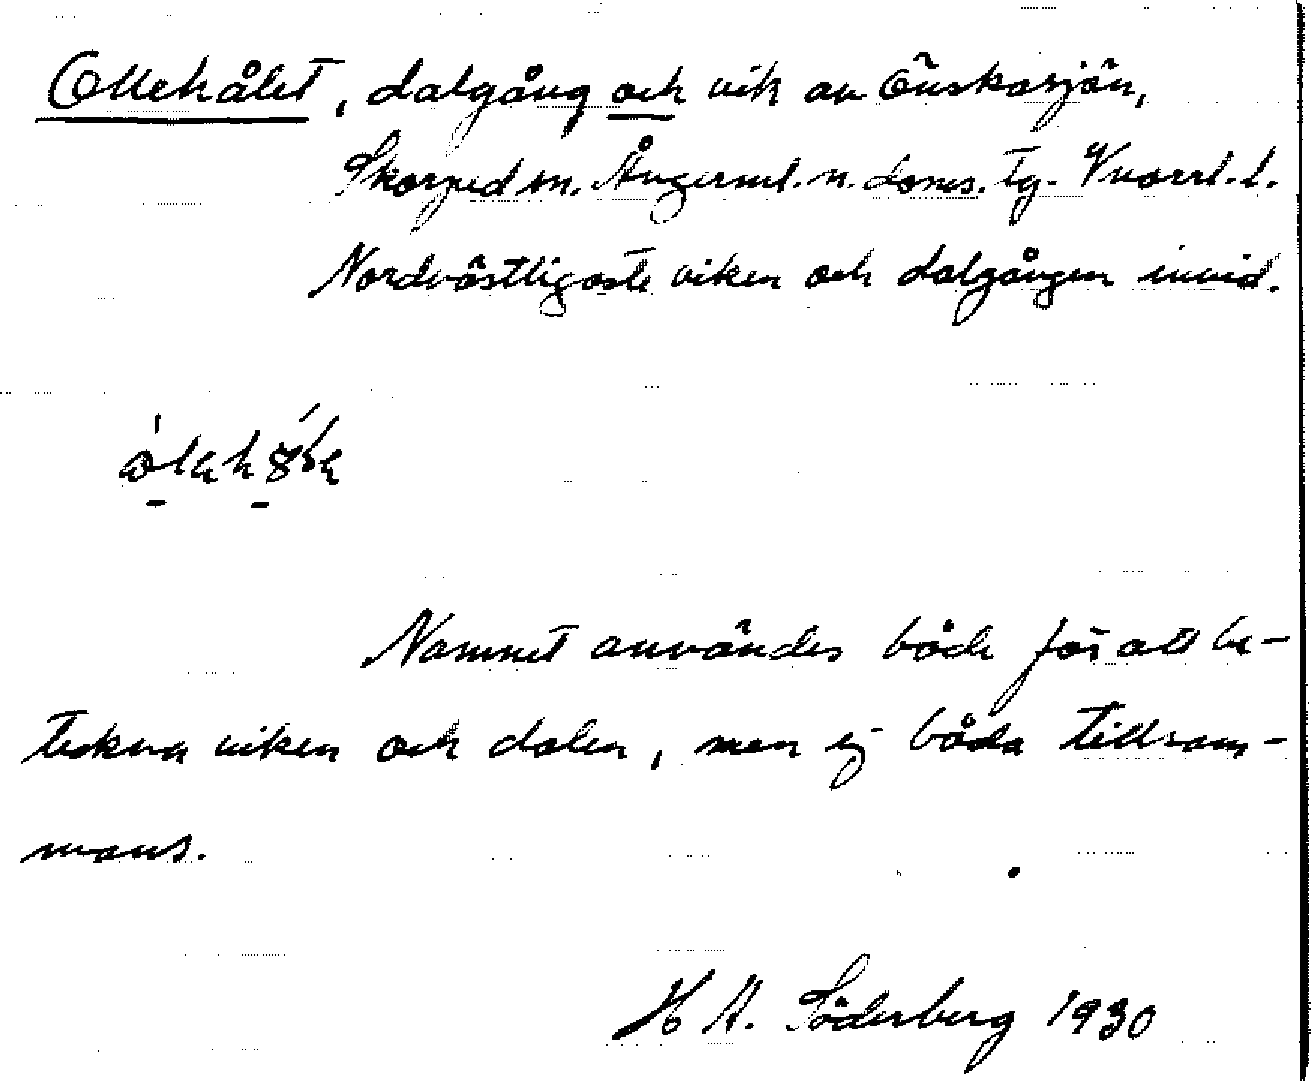 Ollehålet, dalgång och vik av Önskasjön,
Skorped sn. Ångerml. n. doms. tg. Vnorrl. l.
Nordvästligaste viken och dalgången invid.
Namnet användes både för att be-
teckna viken och dalen, men ej båda tillsam-
mans.
H A. Söderberg 1930